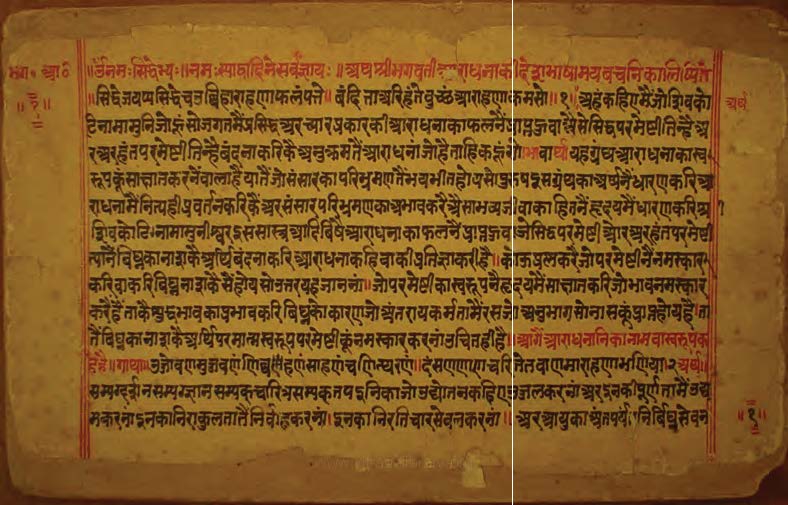 भग॰ आ॰
॥१॥
॥ॐनमःसिद्धेभ्यः॥नमःस्याद्वादिनेसर्वज्ञाय॥अथश्रीभगवतीआराधनाकीदेशभाषामयवचनिकालिखित
॥सिद्धेजयप्पसिद्धेचउव्विहाराहणाफलंपत्ते॥वंदित्ताअरिहंतेवुच्छंआराहणाकमसो॥१॥अहंकहिएमैंजोशिवको
अर्थ
टिनामामुनिजोहूंसोजगतमैंप्रसिद्धअरच्यारप्रकारकीआराधनाकाफलनैंप्राप्तहुवाऐसेसिद्धपरमेष्टीतिन्हैअ
रअरहंतपरमेष्टीतिन्हैवंदनाकरिकैअनुक्रमतैंआराधनाजोहैताहिकहूंगो॥भावार्थ॥यहग्रंथआराधनाकास्व
रूपकूंसाक्षातकरनेवालाहैयातैंजोसंसारकापरिभ्रमणतैंभयभीतहोयसोपुरुषइसग्रंथकाअर्थनैंधारणकरिआ
राधनामैंनित्यहीप्रवर्तनकरिकैंअरसंसारपरिभ्रमणकाअभावकरैऐसाभव्यजीवाकाहितनैंहृदयमैंधारणकरिअ
शिवकोटिनामामुनीश्वरइसशास्त्रआदिविषैआराधनाकाफलनैंप्राप्तहुवाजोसिद्धपरमेष्टीअरअरहंतपरमेष्टी
त्यांनैंविघ्नकानाशकैअर्थिवंदनाकरिआराधनाकहिवाकीप्रतिज्ञाकरीहै॥कोऊप्रश्नकरैजोपरमेष्टीनैंनमस्कार
करिवाकरिविघ्ननाशकैसेंहोयसोउत्तरयहजाननां॥जोपरमेष्टीकास्वरूपनैंहृदयमैंसाक्षातकरिजोभावनमस्कार
करैहैताकैशुद्धभावकाप्रभावकरिविघ्नकोकारणजोअंतरायकर्मतामैंरसजोअनुभागसोनासकूंप्राप्तहोयहैता
तैंविघ्नकानाशकैअर्थिपरमात्मस्वरूपपरमेष्टीकूंनमस्कारकरनांउचितहीहै॥आगैंआराधनानिकानामवास्वरूपक
हैहै॥गाथा॥उज्जोवणमुज्जवणंणिव्वहणंसाहणंचणित्थरणं॥दंसणणाणचरित्ततवाणमाराहणाभणिया॥२॥अर्थ॥
सम्यग्दर्शनसम्यग्ज्ञानसम्यक्चरित्रसम्यक्तपइनिकाजोउद्योतनकहिएउज्जलकरनांअरइनकीपूर्णतामैंउद्य
मकरनांइनकानिराकुलतातैंनिर्वाहकरनां॥इनकानिरतिचारसेवनकरनां॥अरआयुकाअंतपर्यंतनिर्विघ्नसेवन
॥१॥